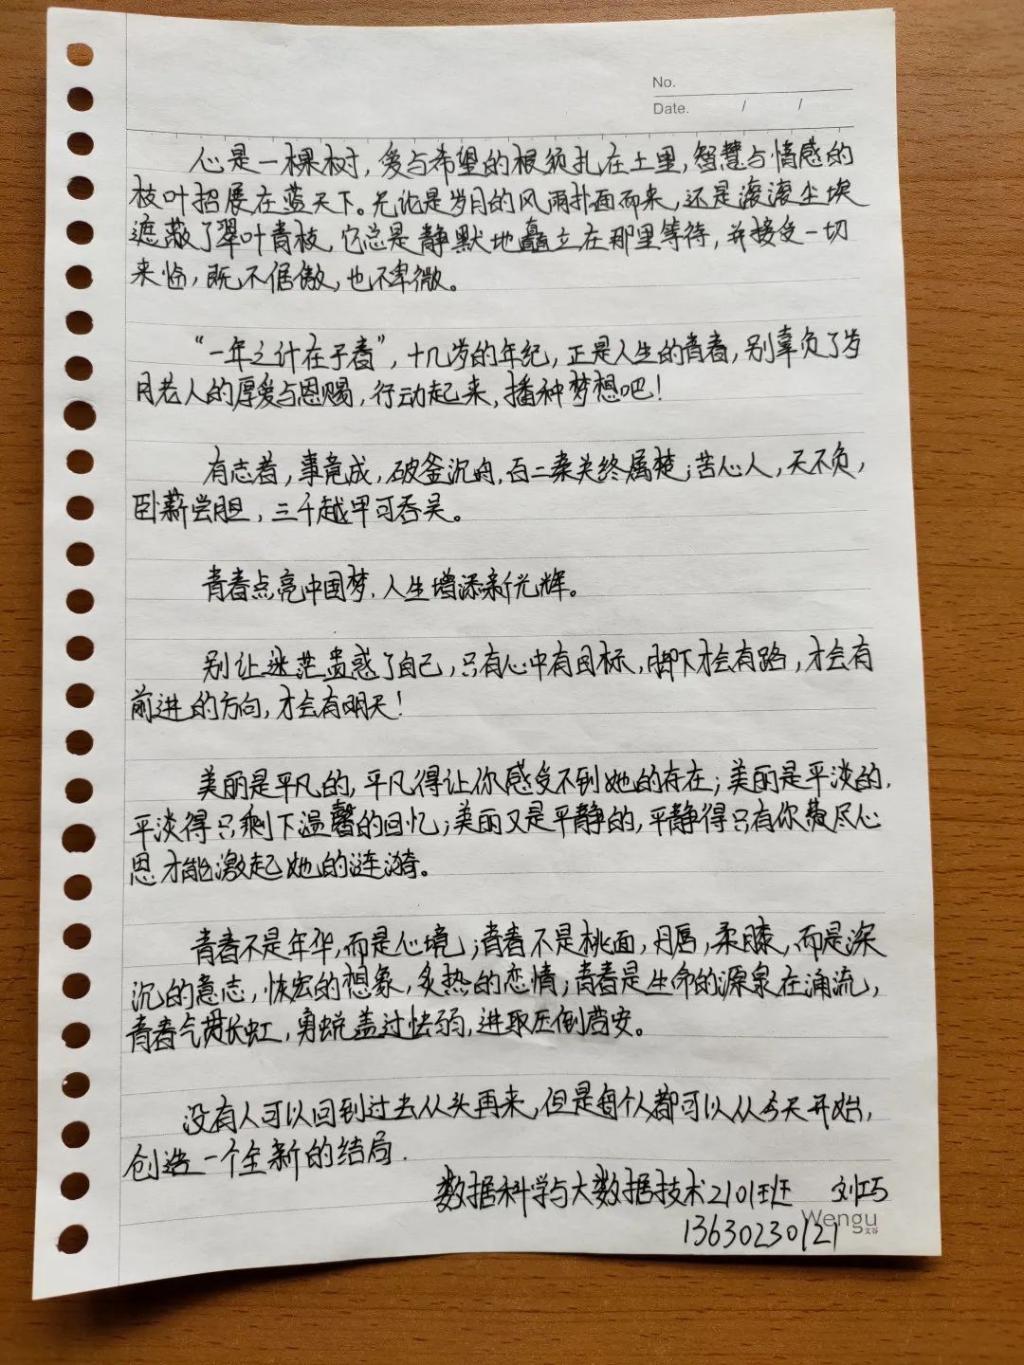 No.
Date. / /
心是一棵树，爱与希望的根须扎在土里，智慧与情感的
枝叶招展在蓝天下。无论是岁月的风雨扑面而来，还是滚滚尘埃
遮蔽了翠叶青枝，它总是静默地矗立在那里等待，并接受一切
来临，既不倨傲，也不卑微。
“一年之计在于春”，十几岁的年纪，正是人生的青春，别辜负了岁
月老人的厚爱与恩赐，行动起来，播种梦想吧！
有志者，事竟成，破釜沉舟，百二秦关终属楚；苦心人，天不负，
卧薪尝胆，三千越甲可吞吴。
青春点亮中国梦，人生增添新光辉。
别让迷茫蛊惑了自己，只有心中有目标，脚下才会有路，才会有
前进的方向，才会有明天！
美丽是平凡的，平凡得让你感受不到她的存在；美丽是平淡的，
平淡得只剩下温馨的回忆；美丽又是平静的，平静得只有你费尽心
思才能激起她的涟漪。
青春不是年华，而是心境；青春不是桃面，丹唇，柔膝，而是深
沉的意志，恢宏的想象，炙热的恋情；青春是生命的源泉在涌流，
青春气贯长虹，勇锐盖过怯弱，进取压倒苟安。
没有人可以回到过去从头再来，但是每个人都可以从今天开始，
创造一个全新的结局.
数据科学与大数据技术2101班 刘巧
13630230121
Wengu